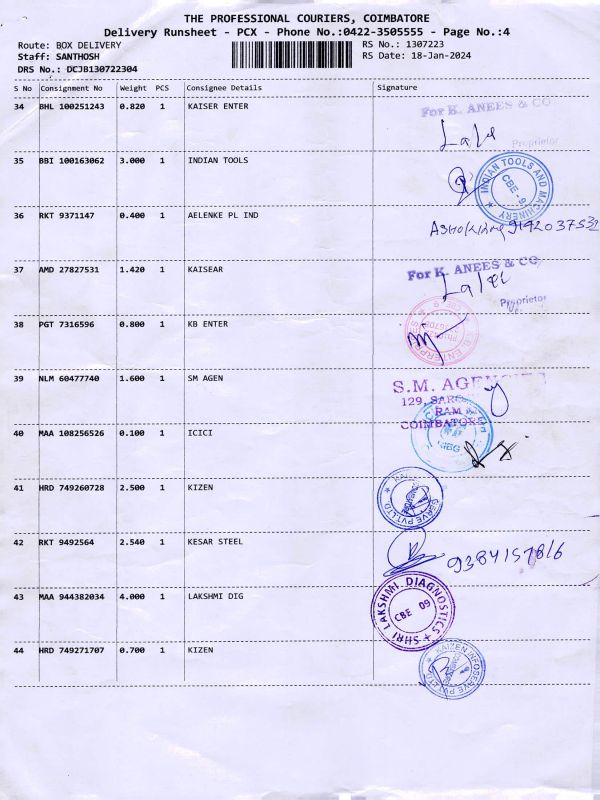 THE PROFESSIONAL COURIERS, COIMBATORE
Delivery Runsheet - PCX - Phone No.:0422-3505555 - Page No.:4
Route: BOX DELIVERY
RS No.: 1307223
Staff: SANTHOSH
RS Date: 18-Jan-2024
DRS No.: DCJB130722304
S No Consignment No Weight PCS Consignee Details Signature
34 BHL 100251243 0.820 1 KAISER ENTER
For K. ANEES & CO
Proprietor
35 BBI 100163062 3.000 1 INDIAN TOOLS
INDIAN TOOLS AND MACHINERY
CBE - 9
36 RKT 9371147 0.400 1 AELENKE PL IND
37 AMD 27827531 1.420 1 KAISEAR
For K. ANEES & CO
Proprietor
38 PGT 7316596 0.800 1 KB ENTER
39 NLM 60477740 1.600 1 SM AGEN
S.M.
129,
RAM
COIMBATORE
40 MAA 108256526 0.100 1 ICICI
41 HRD 749260728 2.500 1 KIZEN
42 RKT 9492564 2.540 1 KESAR STEEL
43 MAA 944382034 4.000 1 LAKSHMI DIG
SHRI LAKSHMI DIAGNOSTICS
CBE 09
44 HRD 749271707 0.700 1 KIZEN
KAIZEN INFOSERVE PVT.LTD